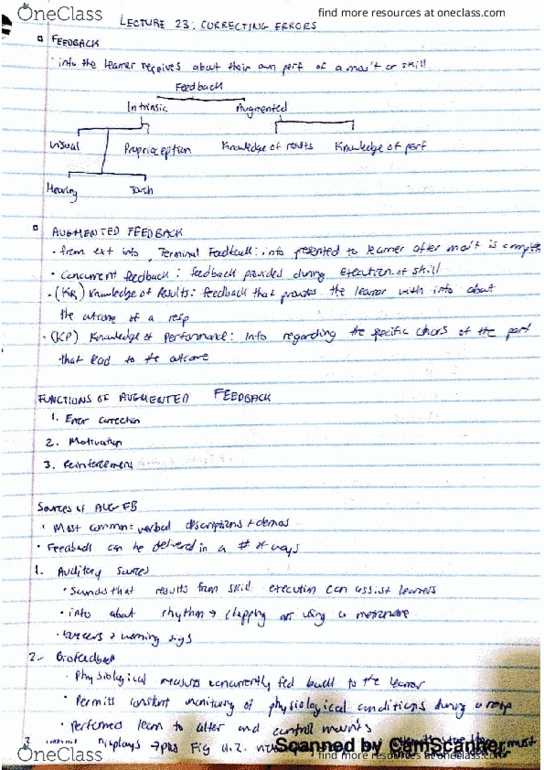 OneClass
find more resources at oneclass.com
LECTURE 23: CORRECTING ERRORS
FEEDBACK
· info the learner receives about their own perf of a mov't or skill
Feedback
Intrinsic Augmented
Visual Proprioception Knowledge of results Knowledge of perf
Hearing Touch
AUGMENTED FEEDBACK
· from ext info, Terminal Feedback: info presented to learner after mov't is complete
· Concurrent feedback: feedback provided during execution of skill
· (KR) Knowledge of Results: feedback that provides the learner with info about
the outcome of a resp
· (KP) Knowledge of Performance: Info regarding the specific chars of the perf
that lead to the outcome
FUNCTIONS OF AUGMENTED FEEDBACK
1. Error correction
2. Motivation
3. Reinforcement
Sources of AUG FB
· Most common: verbal descriptions + demos
· Feedback can be delivered in a # of ways
1. Auditory sources
· Sounds that results from skill execution can assist learners
· info about rhythm → clapping or using a metronome
· buzzers + warning sigs
2. Biofeedback
· Physiological measures concurrently fed back to the learner
· Permits constant monitoring of physiological conditions during a resp
· Performers learn to alter and control mov'ts
3. Displays Fig 11.2.
Scanned by CamScanner
OneClass
find more resources at oneclass.com